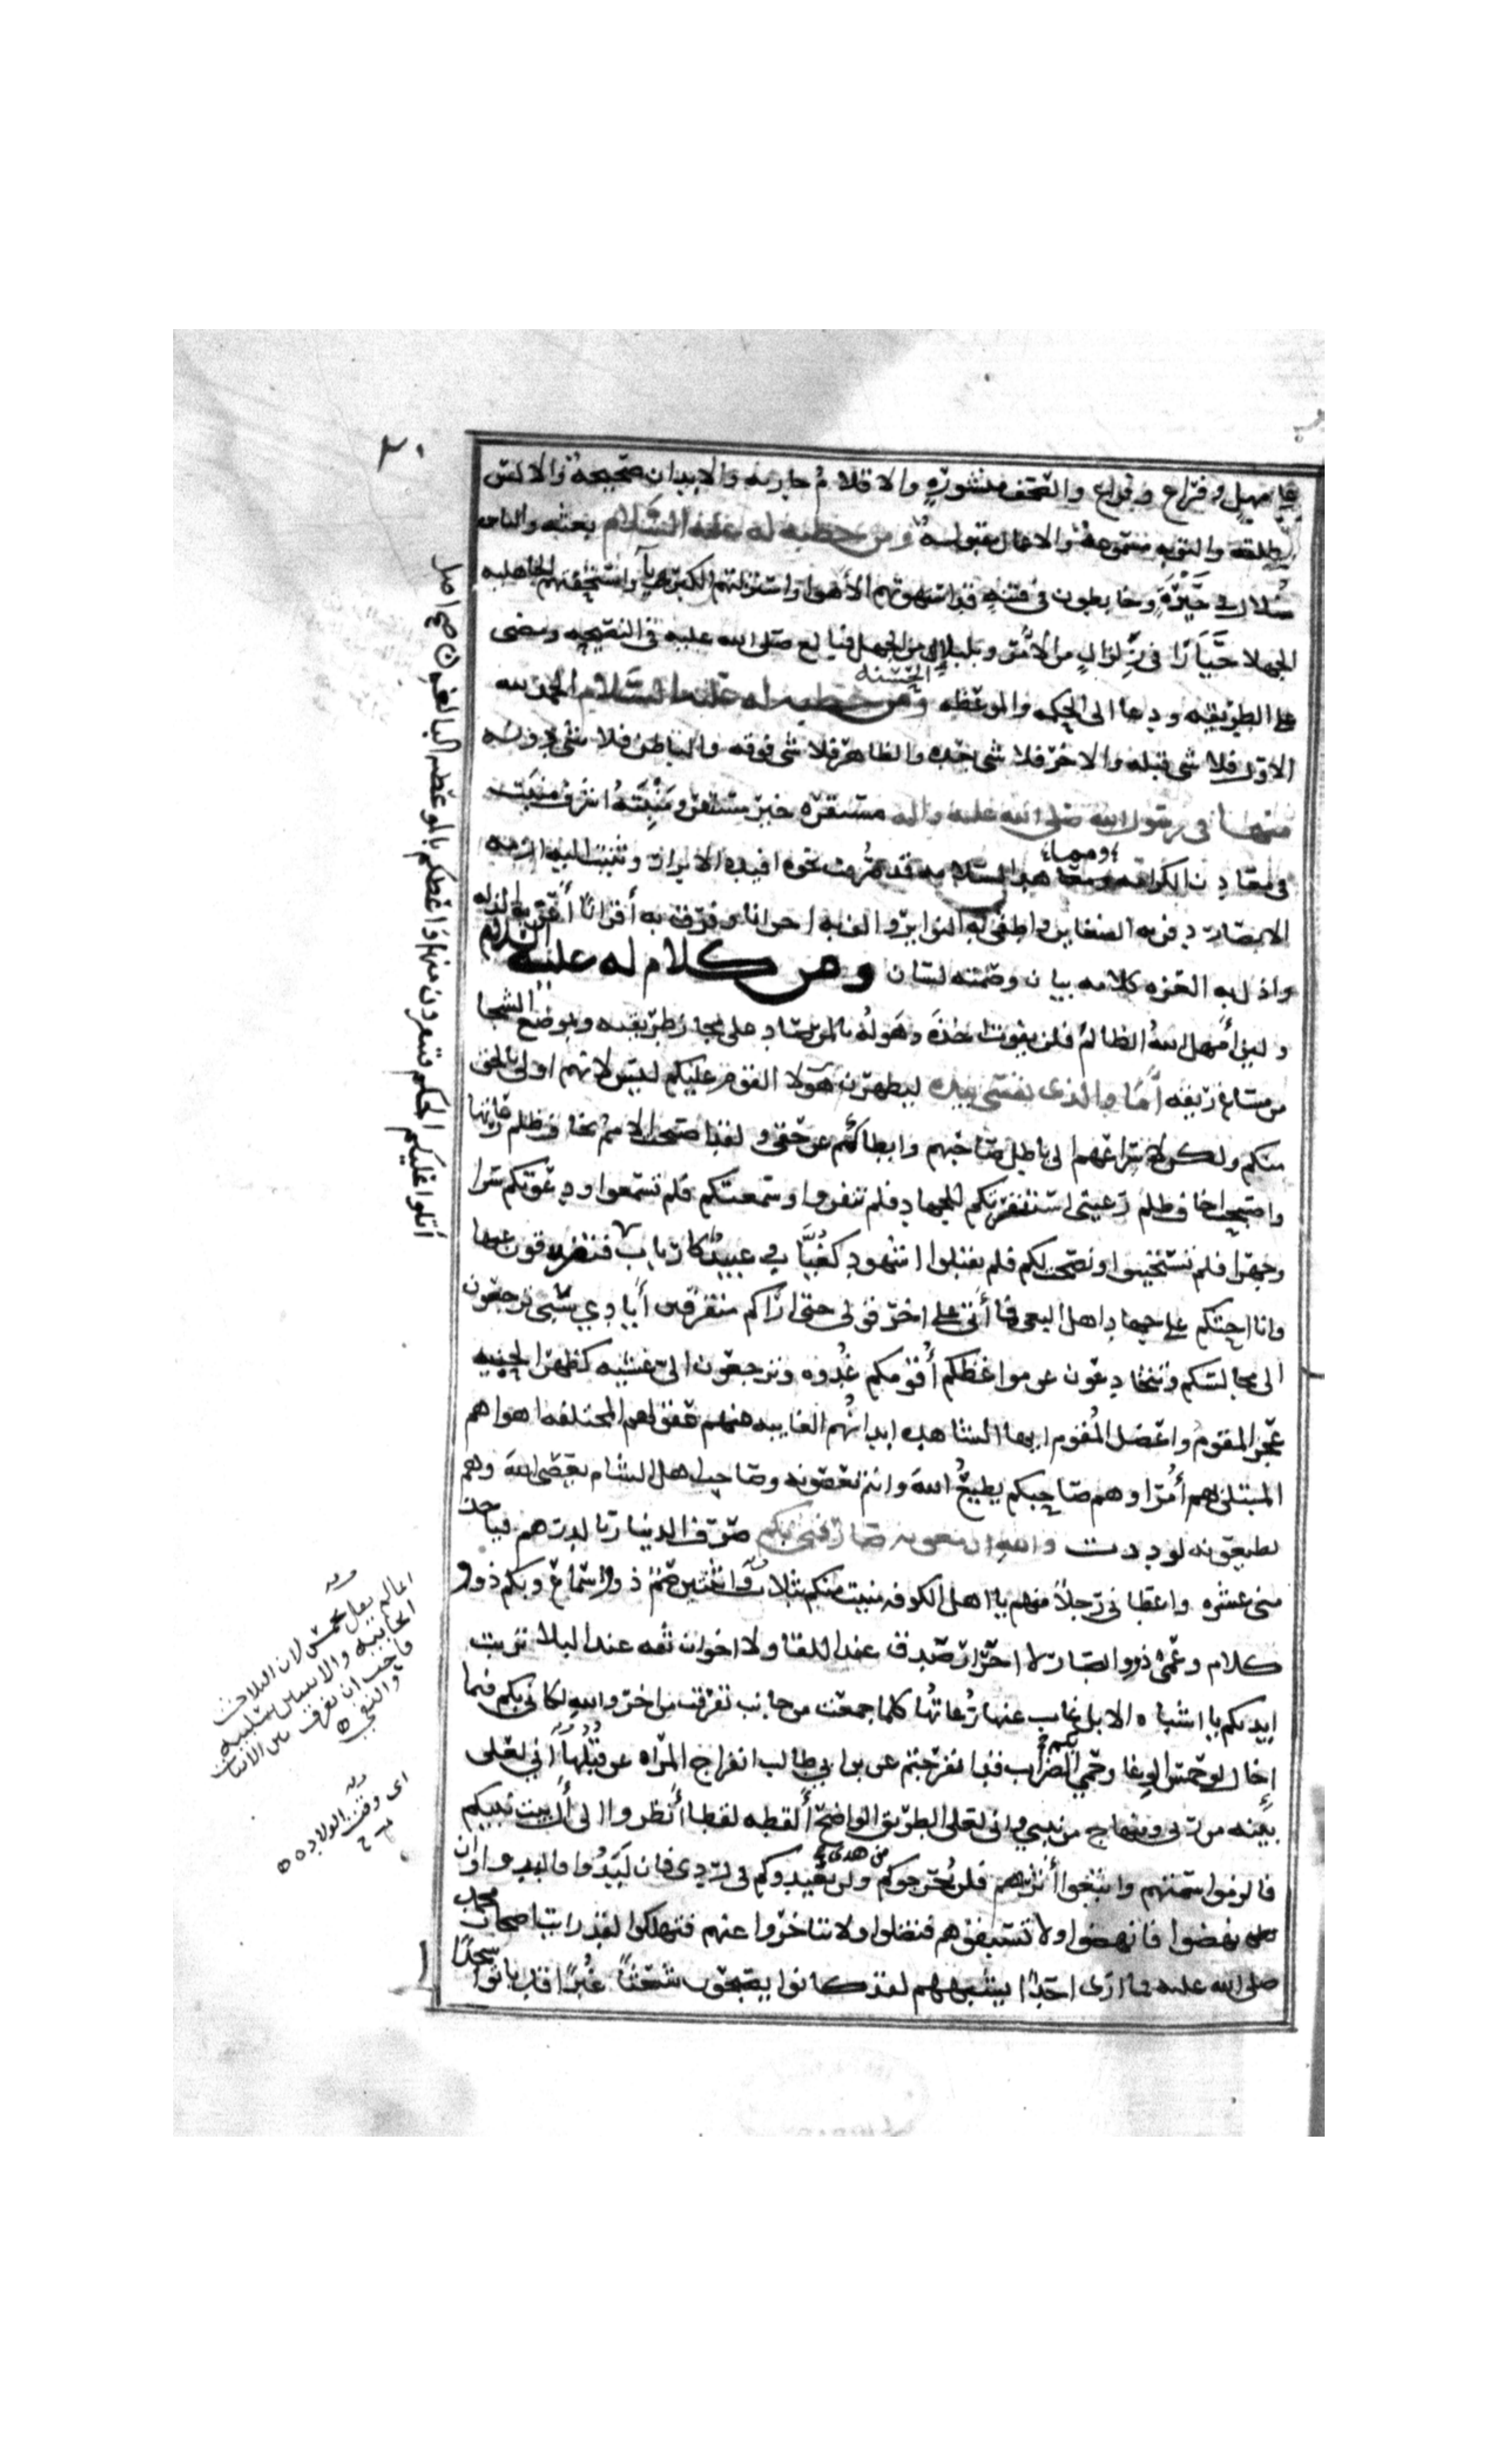 ٣٠
على مهل وفراغ وفراغ والصحف منشوره والاقلام جاريه والابدان صحيحه والالسن
مطلقه والتوبه مسموعه والاعمال مقبوله ومن خطبه له عليه السلام بعثه والناس
ضلال في حَيْرَةٍ وخابطون في فتنه قد استهوتهم الأهوا واستزلتهم الكبريآ واستخفتهم الجاهليه
الجهلا حَيَارَا في زِلزالٍ من الأمر وبلبالٍ من الجهل فبالغ صلى الله عليه في النصيحه ومضى
على الطريقه ودعا الى الحكمه والموعظه الحسنه ومن خطبه له عليه السلام الحمد لله
الاول فلا شى قبله والاخر فلا شى بعده والظاهر فلا شى فوقه والباطن فلا شى دونه
منها في رسول الله صلى الله عليه واله مستقره خير مستقر ومَنْبِتَهُ اشرف منبت
في معادن الكرامه ومماهد السلامه قد صُرفت نحوه افيده الابرار وثنيت اليه ازمه
ومنها
الابصار دفن به الضغاين واطفى به النواير والف به اخوانا وفرق به أقرانًا أعز به الذله
واذل به العزه كلامه بيان وصمته لسان ومن كلام له عليه السلام
ولين أمهل اللهُ الظالم فلن يفوت اخذَه وهَو لهُ بالمرصاد على مجاز طريقه وبموضع الشجا
من مساغ ريقه أمَا والذى نفسى بيده ليظهرن هَولا القوم عليكم ليس لانهم اولى بالحق
منكم ولكن لاسراعهم الى باطل صاحبهم وابطاكم عن حقى ولقد اصبحت الامم تخاف ظلم رعاتها
واصبحت اخاف ظلم رعيتى استنفرتكم للجهاد فلم تنفروا واسمعتكم فلم تسمعوا ودعوتكم سرا
وجهرا فلم تستجيبوا ونصحت لكم فلم تقبلوا اشهود كغُيَّابٍ وعبيدٌ كارباب
وانا احثكم على جهاد اهل البغى فما أتى على اخر قولى حتى اراكم متفرقين أيادي سَبى ترجعون
الى مجالسكم وتتخادعون عن مواعظكم أُقَوّمكم غُدوه وترجعون الىّ عشيه كظهر الحنيه
عجز المقوم واعضل المُقوم ايها الشاهده ابدانُهم الغايبه عنهم عقولهم المختلفه اهواهم
المبتلى بهم أمراوهم صاحبكم يطيعُ اللهَ وانتم تعصونه وصاحب اهل الشام يعصى اللهَ وهم
يطيعونه لوددت والله ان معويه صارفنى بكم صرف الدينار بالدرهم فياخذ
منى عشره واعطانى رَجلاً منهم يا اهل الكوفه منيت منكم بثلاث واثنتين صمّ ذووا اسماع وبكم ذوو
كلام وعُمىٌ ذوو ابصار لا احرار صدق عند اللقا ولا اخوان ثقه عند البلا تربت
ايديكم يا اشباه الابل غاب عنها رُعاتُها كلما جمعت من جانب تفرقت من اخر والله لكانى بكم فيما
إخال لو حمس الوغا وحَمي الضراب قد انفرجتم عن بن ابي طالب انفراج المراه عن قُبُلِها أَنى لعَلى
بينه من ربى ومنهاج من نبيي وانى لعلى الطريق الواضح ألقطه لقطا أُنظروا الى أهل بيت نبيكم
فالزموا سمتهم واتبعوا أثرهم فلن يُخرجوكم من هدى ولن يُعيدوكم فى ردى فان لَبَدُوا فالبدوا وان
نهضوا فانهضوا ولا تسبقوهم فتضلوا ولا تتاخروا عنهم فتهلكوا لقد رايت اصحاب محمد
صلى الله عليه فما ارى احَدًا يشبههم لقد كانوا يصبحون شعثًا غُبرًا قد باتوا سجدًا
أتلوا عليكم الحكم فتنفرون منها واعظكم بالموعظه البالغه صح اصل
اى وقت الولاده